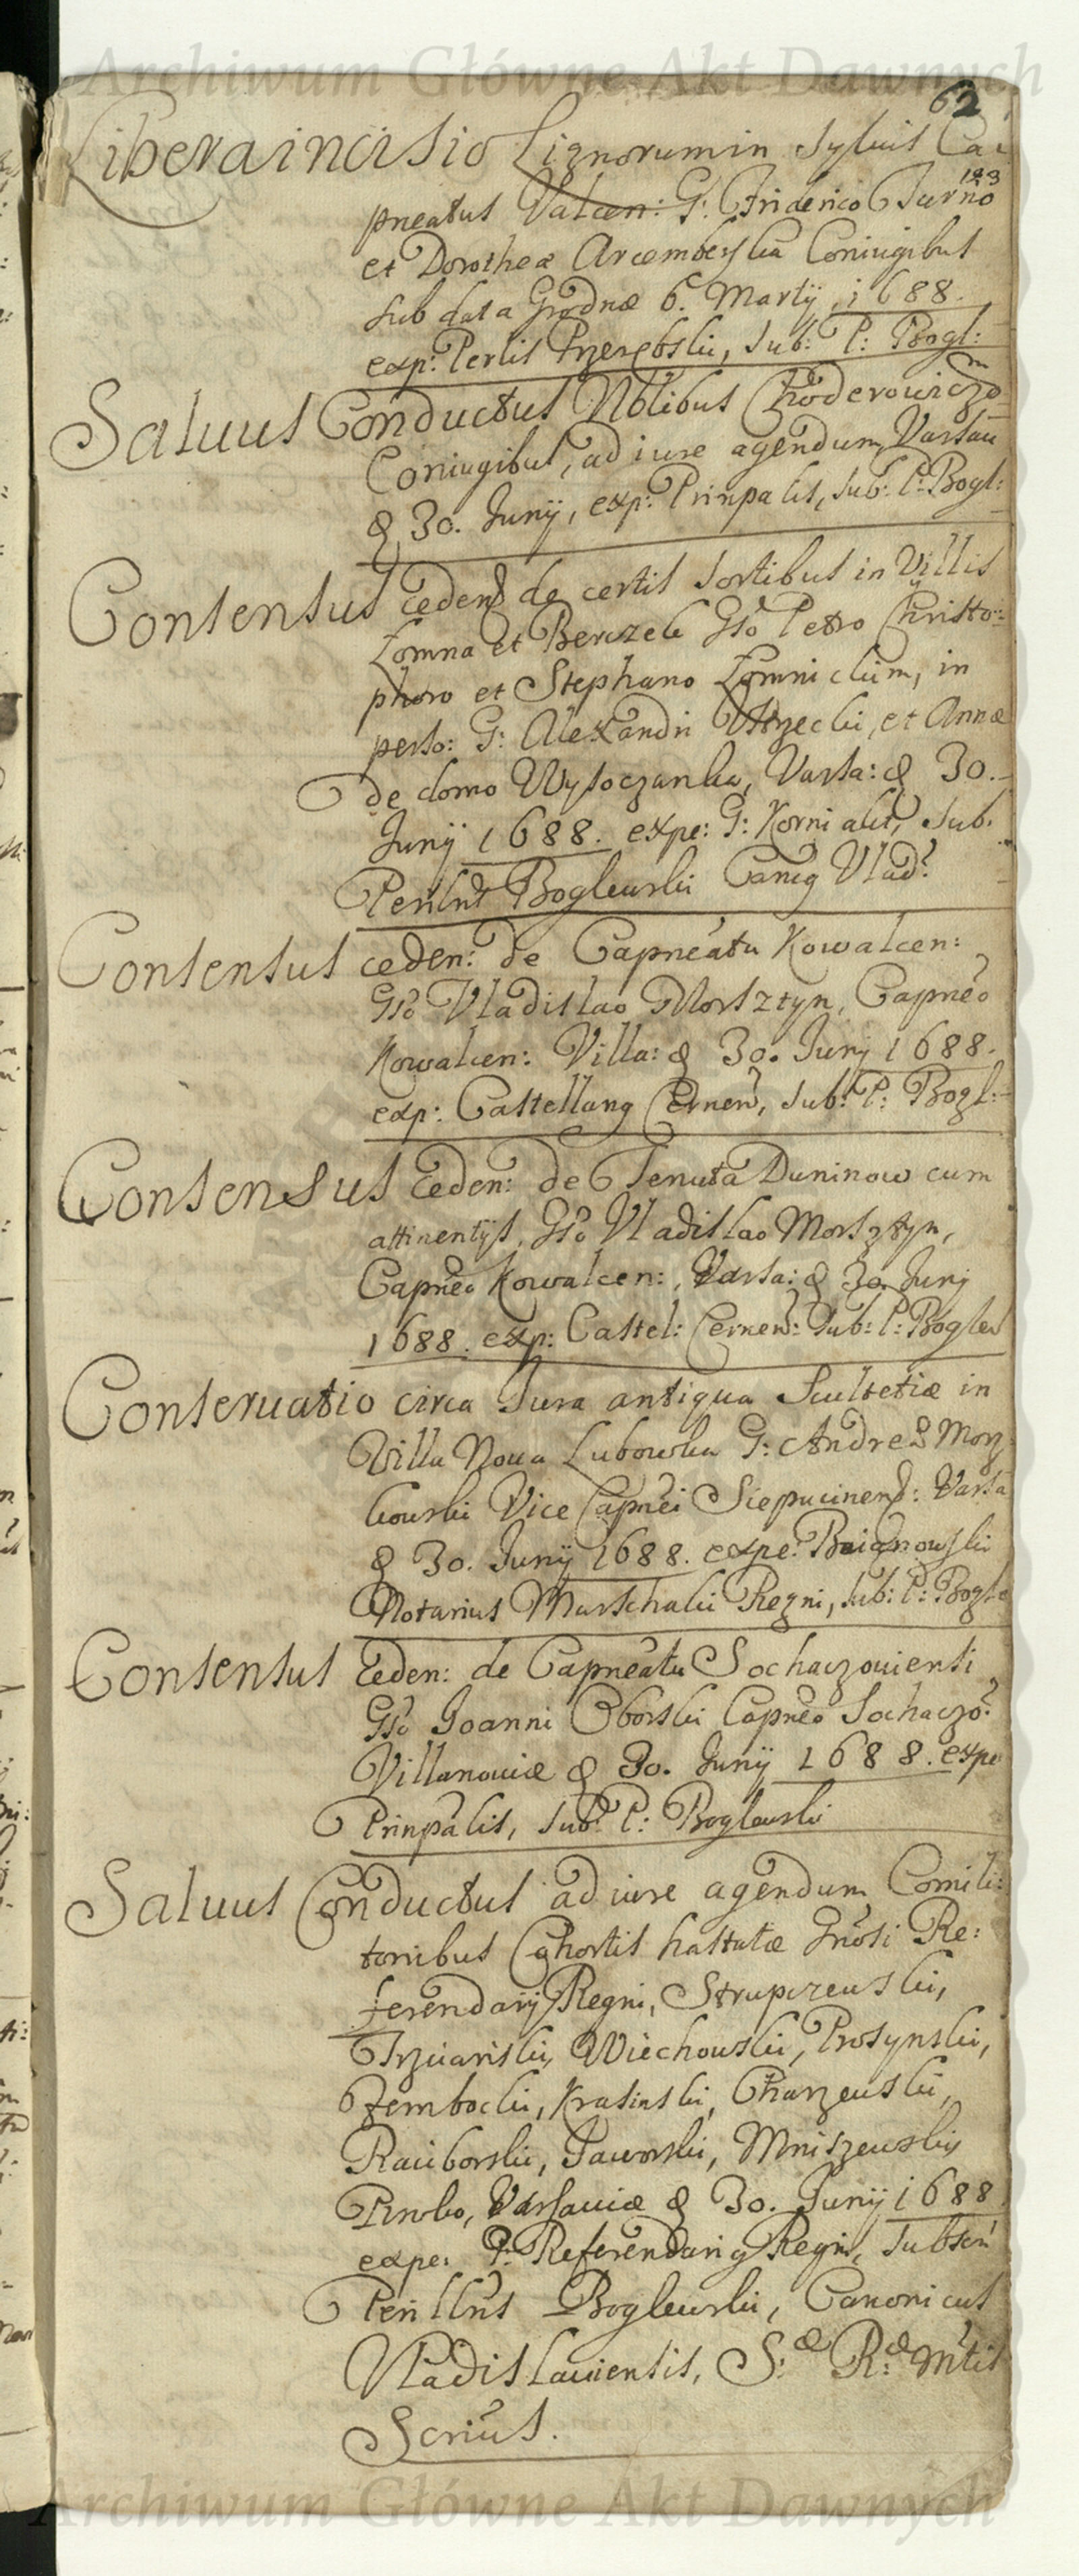 Archiwum Główne Akt Dawnych
62
Libera incisio Lignorum in Syluis Ca
123
pneatus Valcen: G: Friderico Turno
et Dorotheæ Arcemberska Coniugibus
sub data Grodnæ 6. Martij 1688.
exp: Perlis Przerębski, Sub: P: Bogl:
Saluus Conductus Nblibus Choderowiczom
Coniugibus, ad iure agendum, Varsau
d 30. Junij, exp: Prinpalis, Sub: P: Bogl:
Consensus ceden de certis Sortibus in Villis
Łomna et Gso Petro Christo=
phoro et Stephano Łomnickim, in
perso: G: Alexandri Ustrzecki, et Annæ
de domo Wysoczanka, Varsa: d 30.
Junij 1688. expe: G: Kornialis, Sub.
Perilus Boglewski Cancg Vlad:
Consensus ceden: de Capneatu Kowalcen:
Gso Vladislao Morsztyn, Capneo
Kowalcen: Villa: d 30. Junij 1688.
exp: Castellang Cernen, Sub: P: Bogl:
Consensus Ceden: de Tenuta Duninow cum
attinentijs, Gso Vladislao Morsztyn,
Capneo Kowalcen: Varsa: d 30. Junij
1688. exp: Castel: Cernen: Sub: P: Boglew
Conseruatio circa Jura antiqua Scultetiæ in
Villa Noua Lubowska G: Andreæ Morz
kowski Vice Capnei Siepucinens: Varsa
d 30. Junij 1688. expe: Baignowski
Notarius Marschalii Regni, Sub: P: Bogle
Consensus Ceden: de Capneatu Sochaczouiensi
Gso Joanni Oborski Capneo Sochaczo:
Villanouiæ d 30. Junij 1688. expe
Prinpalis, Sub: P: Boglewski
Saluus Conductus ad iure agendum Comili:
tonibus Cohortis hastatæ Gnosi Re:
ferendarij Regni, Strupczewski,
Trzciański, Wiechowski, Prosynski,
Zembocki, Krasinski, Charzewski,
Raciborski, Jaworski, Mniszewski,
Varsauiæ d 30. Junij 1688
expe: P: Referendarig Regni, Subscri
Perillus Boglewski, Canonicus
Vladislauiensis, S:æ R:æ Mtis
Scrius.
Archiwum Główne Akt Dawnych